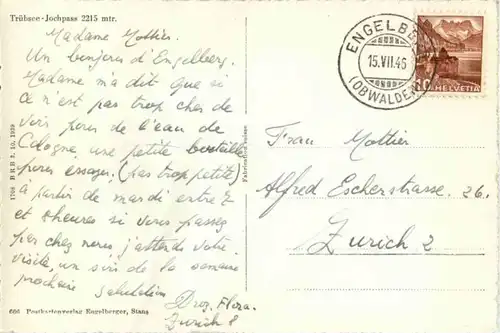 Trübsee-Jochpass 2215 mtr.
Madame Mottier.
Un bonjour d'Engelberg.
Madame m'a dit que si
ce n'est pas trop cher de
vous pour de l'eau de
Cologne, une petite bouteille
pour essayer, (pas trop petite)
à partir de mardi entre 7
et 8 heures si vous passez
par chez nous j'attends votre
visite, un soir de la semaine
prochaine
Droz Flora.
Zurich 8
1798 BRB 3. 10. 1939
Fabrication suisse
666 Postkartenverlag Engelberger, Stans
ENGELBERG
15.VII.46
(OBWALDEN)
10
HELVETIA
Frau Mottier
Alfred Escherstrasse. 26.
Zurich 2